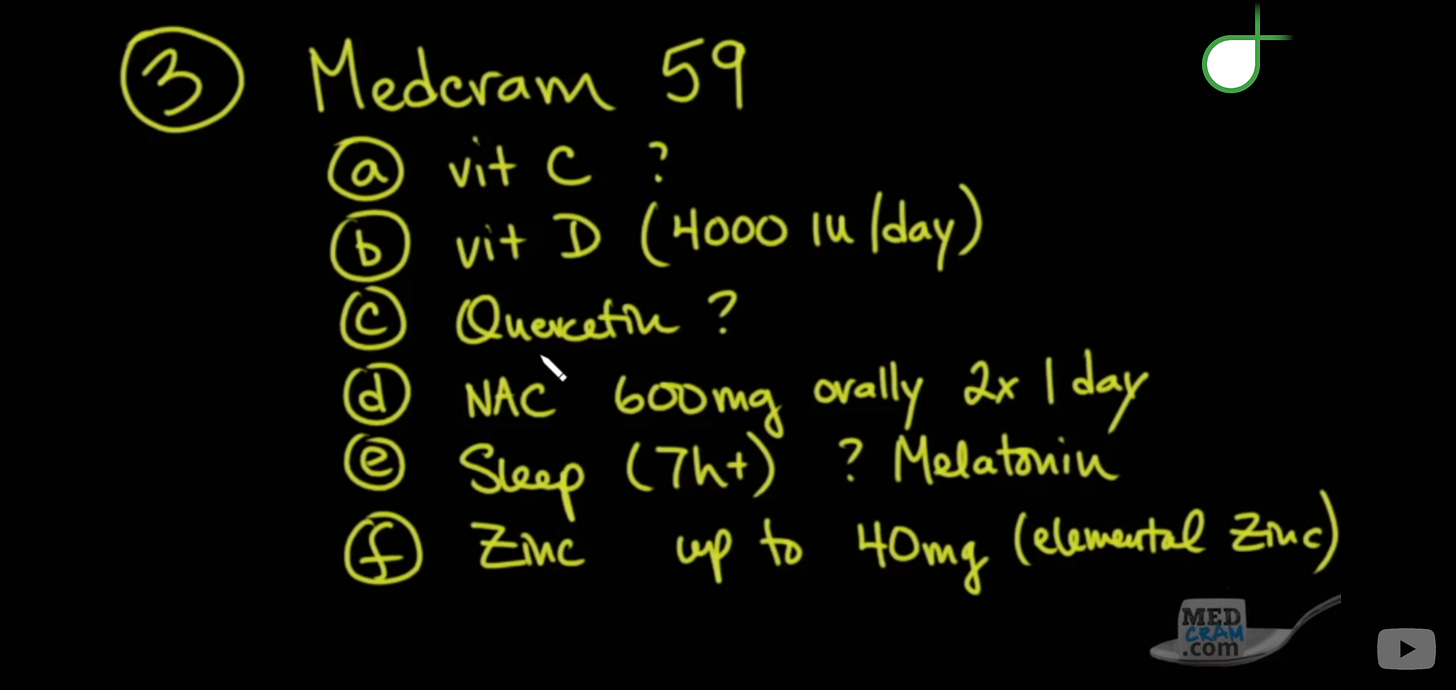 3 Medcram 59
a vit C ?
b vit D (4000 IU/day)
c Quercetin ?
d NAC 600mg orally 2x / day
e Sleep (7h+) ? Melatonin
f Zinc up to 40mg (elemental Zinc)
MED
CRAM
.com